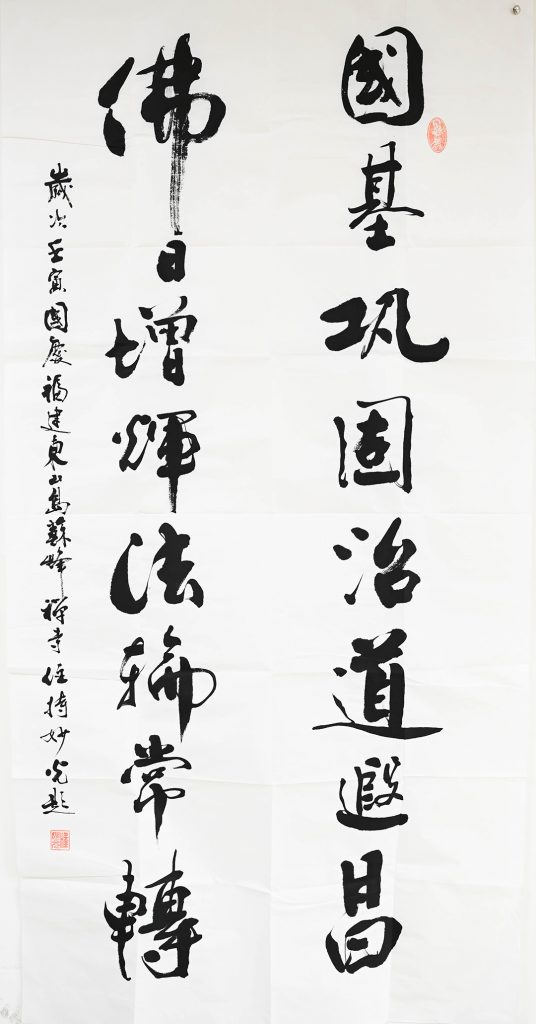 國基巩固治道遐昌
佛日增輝法輪常轉
歲次壬寅國慶福建東山島蘇峰禪寺住持妙光題